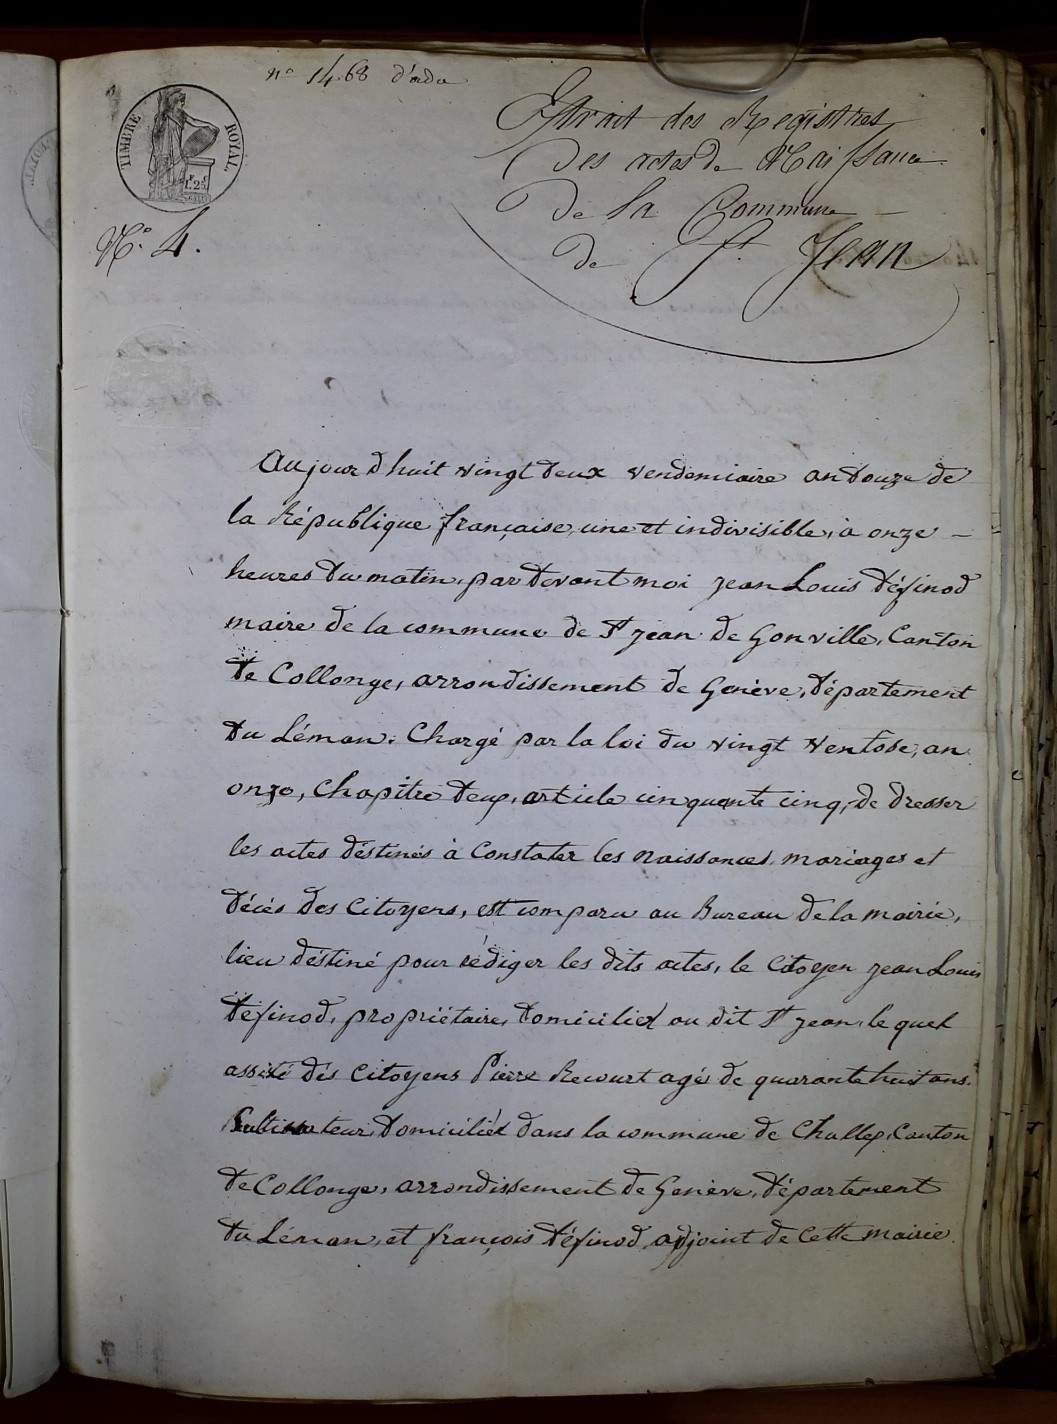 n° 1468 d'ordre
TIMBRE ROYAL
1.F 25
Extrait des Registres
des actes de Naissance
de la Commune
de St. Jean
N°. 4.
Aujourd huit vingt deux vendemiaire an douze de
la République française, une et indivisible, à onze –
heures du matin, par devant moi jean Louis définod
maire de la commune de St jean de Gonville, Canton
de Collonge, arrondissement de Genève, département
du Léman. Chargé par la loi du vingt Ventôse, an
onze, Chapitre deux, article cinquante cinq, de dresser
les actes déstinés à Constater les naissances, mariages et
décès des Citoyens, est comparu au Bureau de la mairie,
lieu déstiné pour rédiger les dits actes, le Citoyen jean Louis
définod, propriétaire, domicilié au dit St jean, le quel
assisté dés Citoyens Pierre Recourt agé de quarante huit ans.
Cultivateur, domicilié dans la commune de Challex, Canton
de Collonge, arrondissement de Genève, département
du Léman, et françois définod, adjoint de Cette mairie.